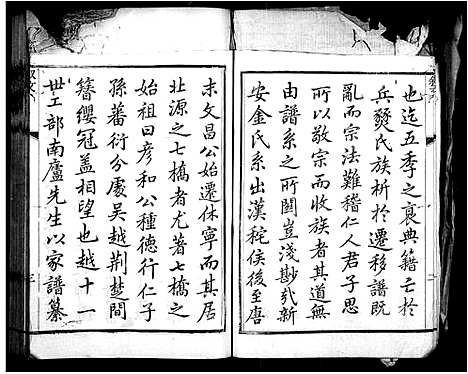 也迄五季之衰典籍亡於
兵燹氏族析於遷移譜既
亂而宗法難稽仁人君子思
所以敬宗而收族者其道無
由譜系之所關豈淺尠哉新
安金氏系出漢秺侯後至唐
末文昌公始遷休寧而其居
北源之七橋者尤著七橋之
始祖曰彥和公種德行仁子
孫蕃衍分處吳越荆楚間
簪纓冠蓋相望也越十一
世工部南廬先生以家譜纂